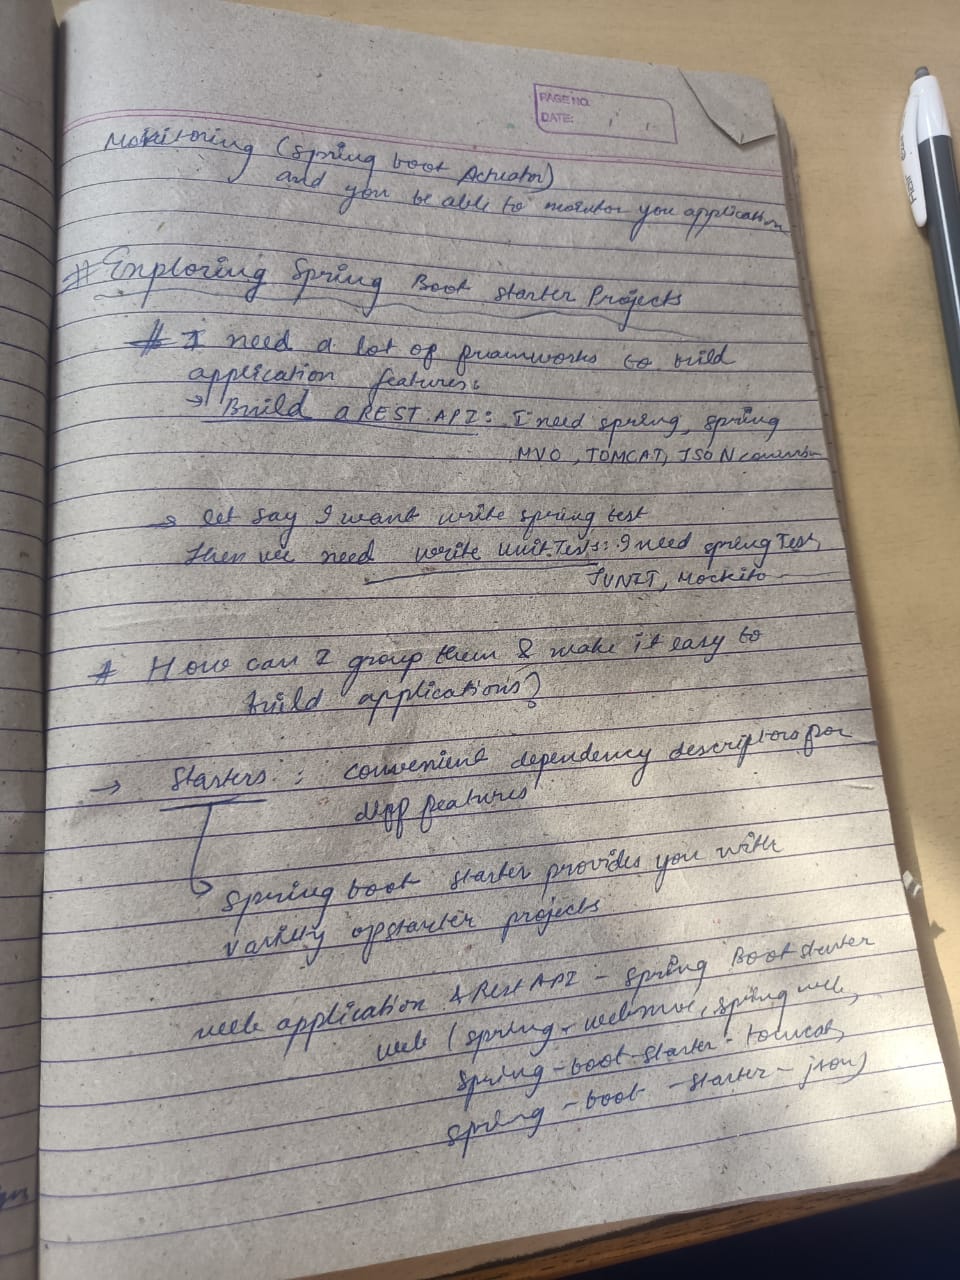 PAGE NO.
DATE:
Monitoring (spring boot Actuator)
and you be able to monitor you application
# Exploring Spring Boot Starter Projects
# I need a lot of frameworks to build
application features:
→ Build a REST API: I need spring, spring
MVC, TOMCAT, JSON conversion
→ let say I want write spring test
then we need write unit Tests: I need spring Test,
JUNIT, Mockito
# How can I group them & make it easy to
build applications?
→ Starters : convenient dependency descriptors for
diff features
spring boot starter provides you with
variety of starter projects
web application & Rest API - spring Boot starter
web (spring-webmvc, spring web,
spring-boot-starter-tomcat,
spring-boot-starter-json)